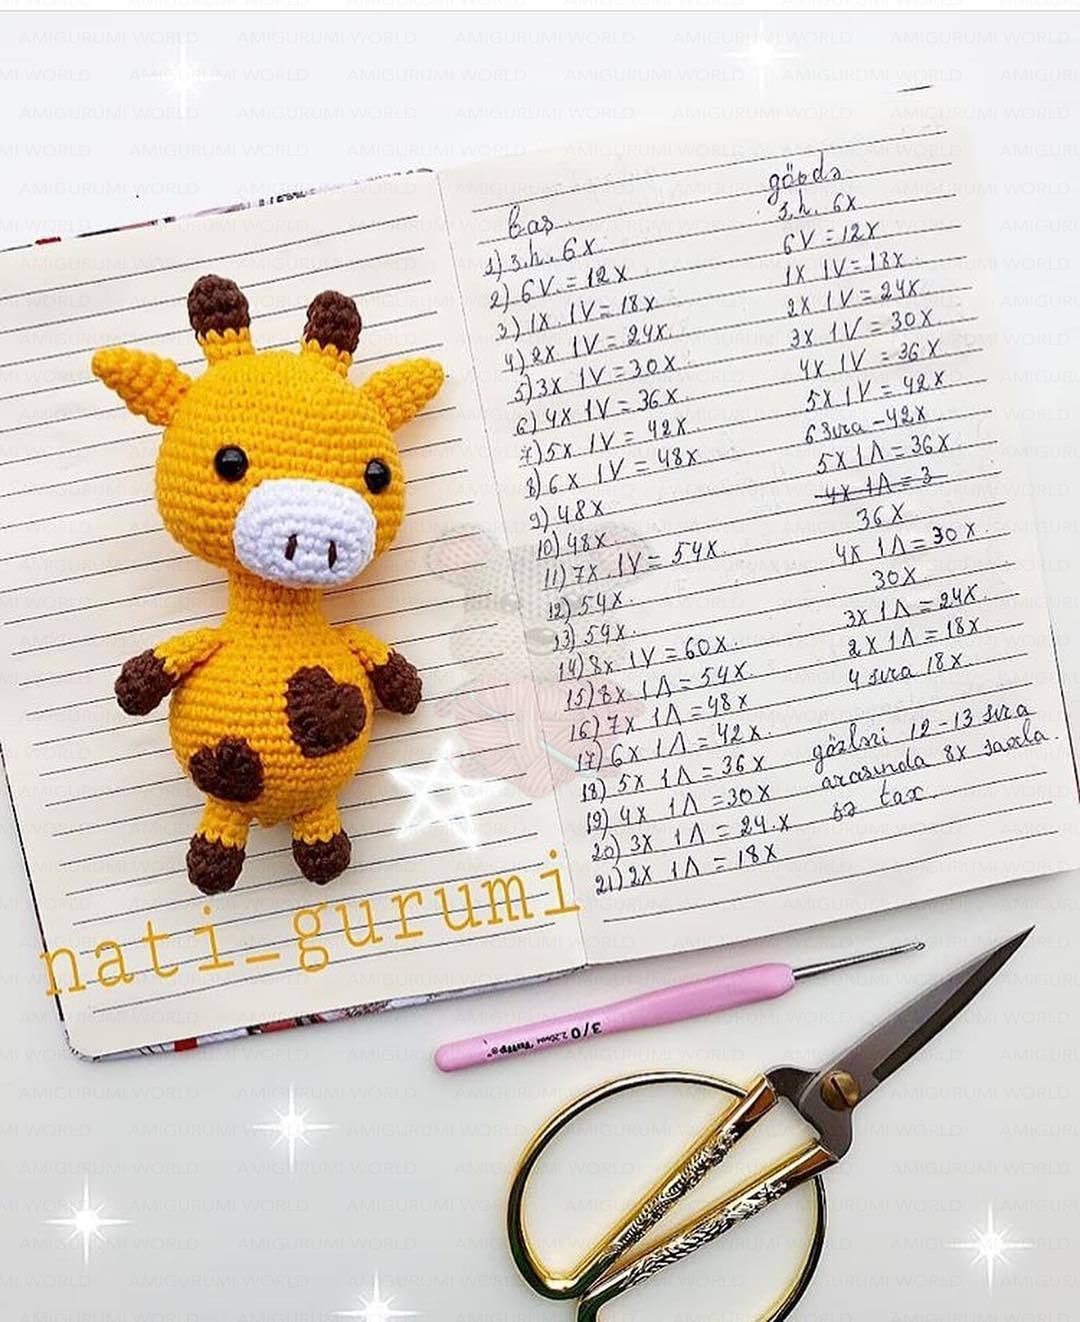 baş
1) 3.h. 6X.
2) 6V. = 12X.
3) 1X. 1V = 18X
4) 2X 1V = 24X.
5) 3X 1V = 30X
6) 4X 1V = 36X.
7) 5X 1V = 42X.
8) 6X 1V = 48X.
9) 48X
10) 48X
11) 7X. 1V = 54X.
12) 54X.
13) 54X.
14) 8X 1V = 60X.
15) 8X 1Λ = 54X.
16) 7X 1Λ = 48X
17) 6X 1Λ = 42X.
18) 5X 1Λ = 36X
19) 4X 1Λ = 30X
20) 3X 1Λ = 24.X
21) 2X 1Λ = 18X
gövdə
3.h. 6X
6V = 12X
1X 1V = 18X
2X 1V = 24X.
3X 1V = 30X
4X 1V = 36X
5X 1V = 42X
6 sıra - 42X
5X 1Λ = 36X
4X 1Λ = 3
36X
4X 1Λ = 30X.
30X.
3X 1Λ = 24X.
2X 1Λ = 18X
4 sıra 18X.
gözləri 12-13 sıra
arasında 8X saxla.
sə tax.
nati_gurumi
3/0 2.20mm Tulip®
AMIGURUMI WORLD